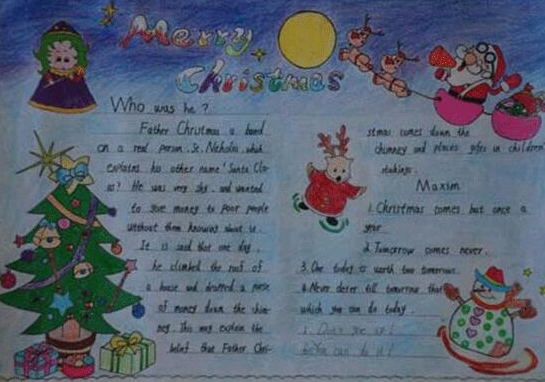 Merry
Christmas
Who was he?
Father Christmas is based
on a real person, St. Nicholas, which
explains his other name 'Santa Cla-
us? He was very shy, and wanted
to give money to poor people
without them knowing about it.
It is said that one day,
he climbed the roof of
a house and dropped a purse
of money down the chim-
ney. This may explain the
belief that Father Chri-
stmas comes down the
chimney and places gifts in children'
stockings.
Maxim
1. Christmas comes but once a
year
2. Tomorrow comes never.
3. One today is worth two tomorrows.
4. Never defer till tomorrow that
which you can do today.
5. Don't give up!
6. You can do it!